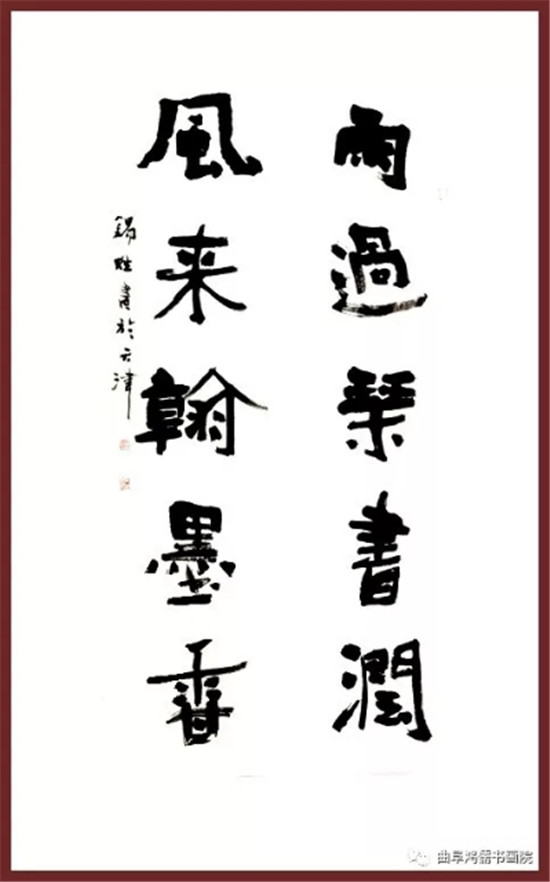 雨過琹書潤
風来翰墨香
錫胜書於天津
曲阜鸿儒书画院